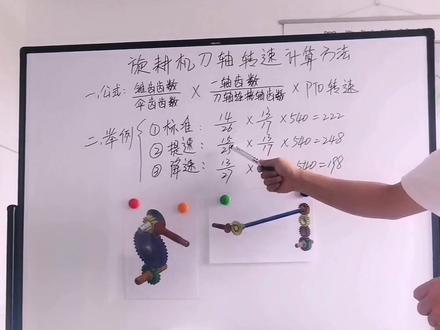 旋耕机刀轴转速计算方法
一.公式: 锥齿齿数/伞齿齿数 × 一轴齿数/刀轴链接轴齿数 × PTO转速
二.举例 ①标准: 14/26 × 13/17 × 540=222
②提速: 15/25 × 13/17 × 540=248
③降速: 13/27 × 540=198